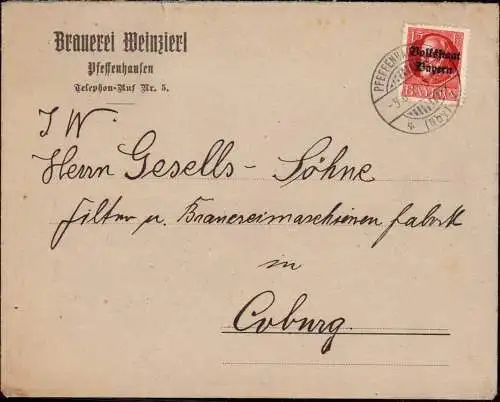 Brauerei Weinzierl
Pfeffenhausen
Telephon-Ruf Nr. 5.
15
Volksstaat
Bayern
BAYERN
PFEFFENH
J W.
Herrn Gesells- Söhne
Filter u. Brauereimaschienen fabrik
in
Coburg.